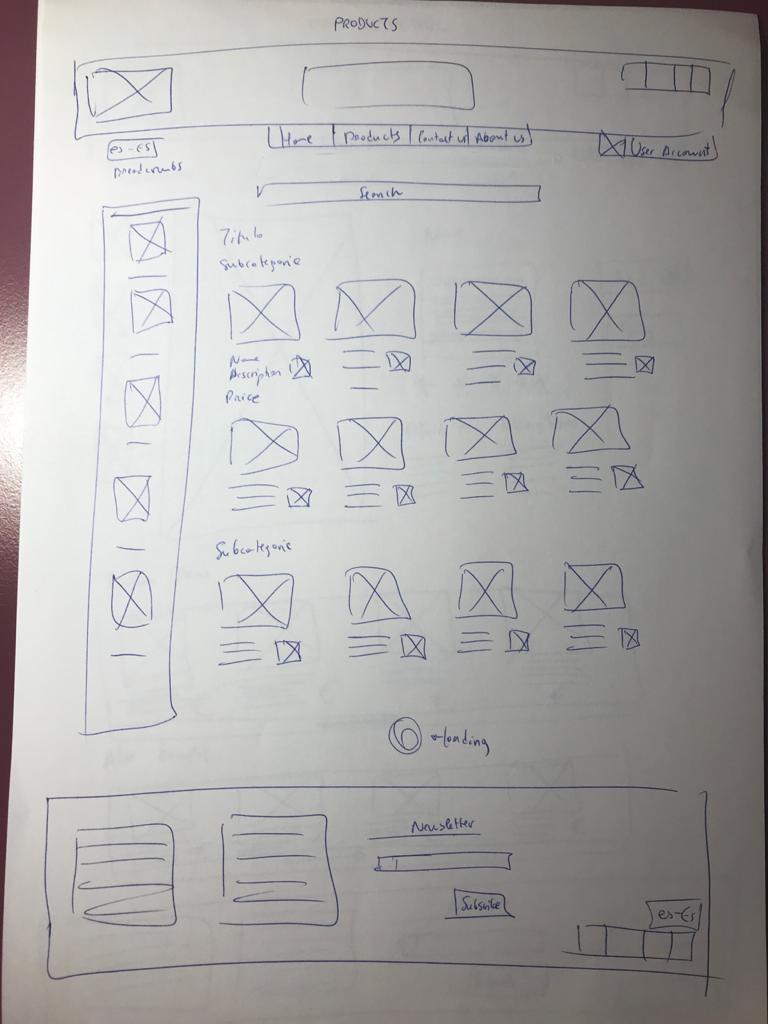 PRODUCTS
Home Products Contact us About us
es-ES
User Account
Breadcrumbs
Search
Titulo
Subcategorie
Name
Description
Price
Subcategorie
loading
Newsletter
Subscribe
es-Es